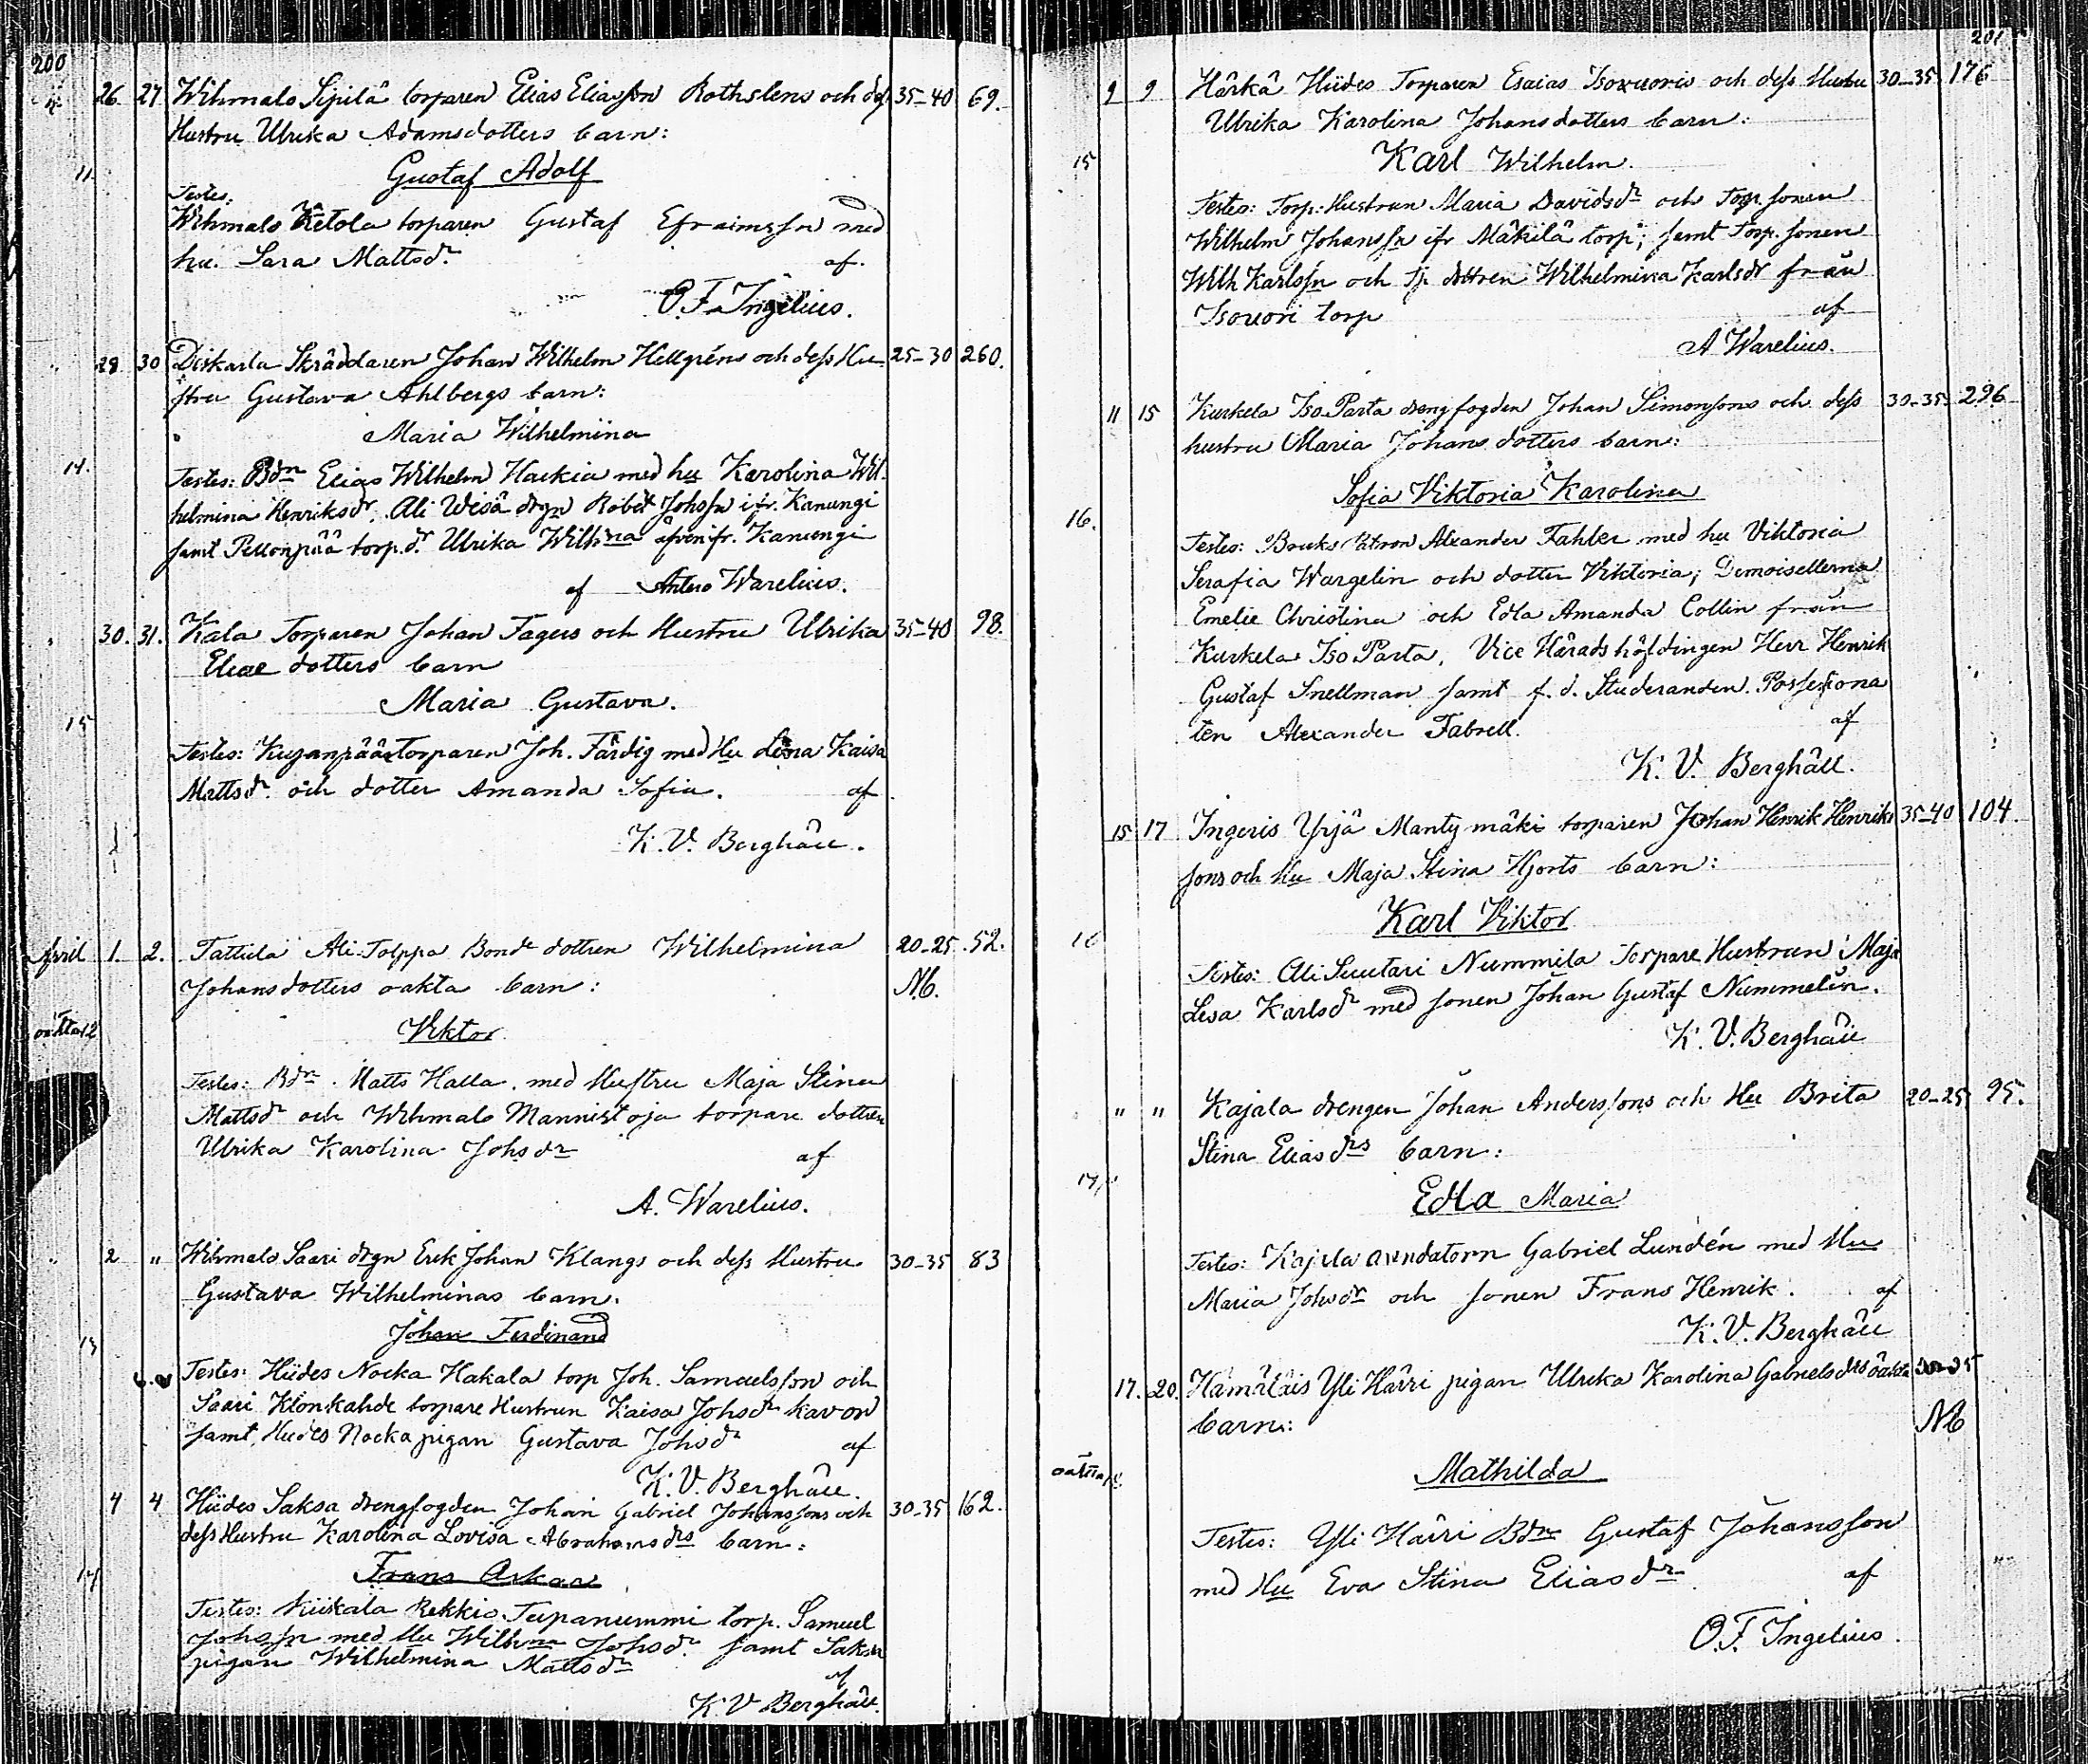 200
26 27 Wihmalo Sipilä torparen Elias Eliasson Rothstens och dess 35-40 69.
Hustru Ulrika Adamsdotters barn:
11. Gustaf Adolf
Testes:
Wihmalo Ketola torparen Gustaf Efraimsson med
hu. Sara Mattsdr af.
O. F. Ingelius.
29 30 Skräddaren Johan Wilhelm Hellgréns och dess Hu- 25-30 260.
stru Gustava Ahlbergs barn:
Maria Wilhelmina
14.
Testes: Bdn Elias Wilhelm Hackia med hu Karolina Wil-
helmina Henriksdr. Ali Wisä drgn Robert Johssn ifr. Kanungi
samt torp.dr Ulrika Wilhna äfven ifr. Kanungi
af Antero Warelius.
30. 31. Kala Torparen Johan Fagers och Hustru Ulrika 35-40 98.
Eliae dotters barn
Maria Gustava.
15
Testes: torparen Joh. Färdig med Hu Lena Kaisa
Mattsdr. och dotter Amanda Sofia. af
K. V. Berghäll.
April 1. 2. Tattula Ali-Tolppa Bonde dottren Wilhelmina 20-25 52.
Johansdotters oäkta barn: NB.
oäkta 12 Viktor
Testes: Bdn. Matts Halla. med Hustru Maja Stina
Mattsdr och Wihmalo Mannistoja torpare dottren
Ulrika Karolina Johsdr af
A. Warelius.
2 " Wihmalo Saari drgn Erik Johan Klangs och dess Hustru 30-35 83
Gustava Wilhelminas barn.
13 Johan Ferdinand
Testes: Hiides Nocka Hakala torp Joh. Samuelsson och
Saari Klonkahde torpare Hustrun Kaisa Johsdr
samt, Hiides Nocka pigan Gustava Johsdr af
K. V. Berghäll.
4 4 Hiides Saksa drengfogden Johan Gabriel Johanssons och 30-35 162.
dess Hustru Karolina Lovisa Abrahamsdrs barn:
14 Frans Oskar
Testes: Rekkio Tupanummi torp. Samuel
Johssn med Hu Wilhna Johsdr. samt Saksa
pigan Wilhelmina Mattsdr
af
K. V. Berghäll.
201
9 9 Härkä Hiides Torparen Esaias Isovuoris och dess Hustru 30-35 176
Ulrika Karolina Johansdotters barn:
15 Karl Wilhelm.
Testes: Torp: Hustrun Maria Davidsdr och Torp. sonen
Wilhelm Johanssn ifr Mäkilä torp; samt Torp. sonen
Wilh Karlssn och dottren Wilhelmina Karlsdr från
Isovori torp af
A Warelius.
11 15 Kurkela Iso Parta drengfogden Johan Simonsons och dess 30-35 296
hustru Maria Johans dotters barn:
Sofia Viktoria Karolina
16.
Testes: Bruks Patron Alexander Fahler med hu Viktoria
Serafia Wargelin och dotter Viktoria; Demoisellerna
Emelie Christina och Edla Amanda Collin från
Kurkela Iso Parta, Vice Häradshöfdingen Herr Henrik
Gustaf Snellman samt f. d. Studeranden. Possessiona
ten Alexander Fabrell. af
K. V. Berghäll.
15 17 Ingeris Yrjä Mantymäki torparen Johan Henrik Henriks 35-40 104.
sons och Hu Maja Stina Hjorts barn:
Karl Viktor
16
Testes: Ali Suutari Nummila Torpare Hustrun Maja
Lisa Karlsdr med sonen Johan Gustaf Nummelin.
K. V. Berghäll
" " Kajala drengen Johan Anderssons och Hu Brita 20-25 95.
Stina Eliasdrs barn:
17 Edla Maria
Testes: Kajala arendatorn Gabriel Lundén med Hu
Maria Johsdr och sonen Frans Henrik. af
K. V. Berghäll
17. 20. Hämäläis Yli Härri pigan Ulrika Karolina Gabrielsdrs oäkta 30-35
barn: NB
oäkta Mathilda
Testes: Yli Härri Bdn Gustaf Johansson
med Hu Eva Stina Eliasdr af
O. F. Ingelius.